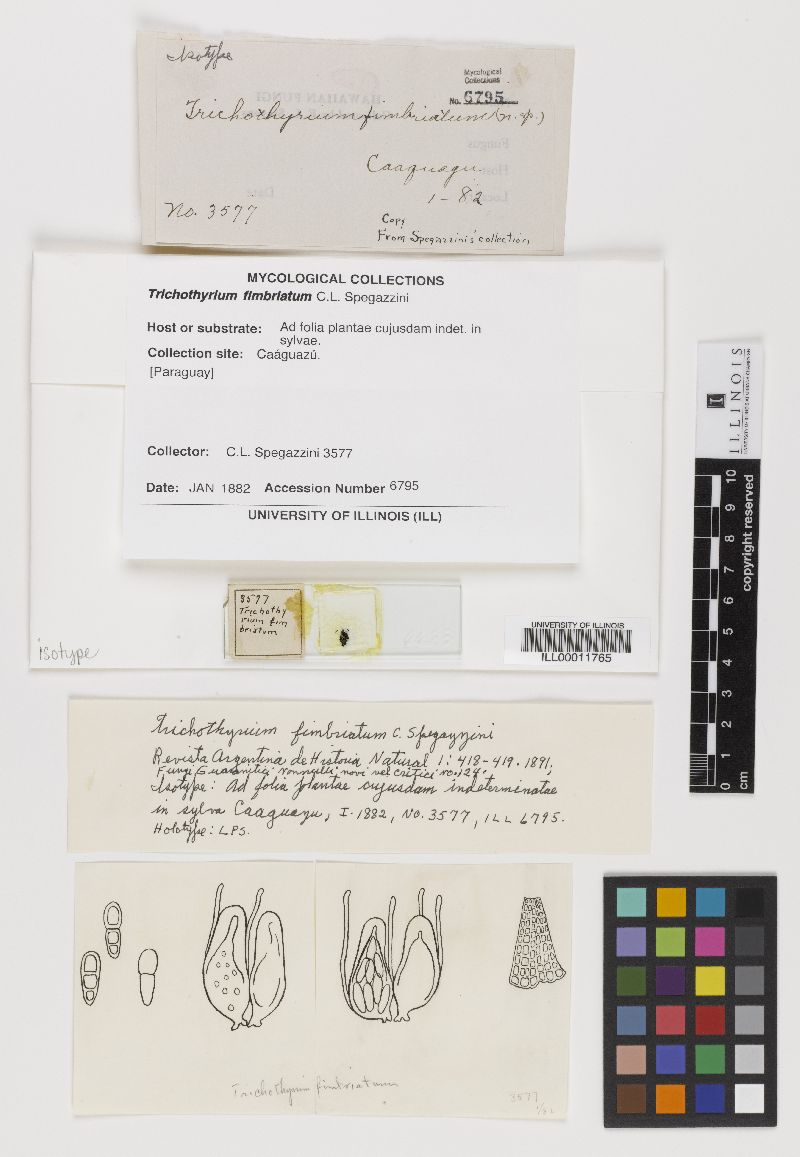 Isotype
Mycological
Collections
No. 6795
Trichothyrium fimbriatum (n. sp.)
Caaguazu
1-82
No. 3577
Copy
From Spegazzini's collection
MYCOLOGICAL COLLECTIONS
Trichothyrium fimbriatum C.L. Spegazzini
Host or substrate: Ad folia plantae cujusdam indet. in
sylvae.
Collection site: Caáguazú.
[Paraguay]
Collector: C.L. Spegazzini 3577
Date: JAN 1882 Accession Number 6795
UNIVERSITY OF ILLINOIS (ILL)
3577
Trichothy
rium fim
briatum
isotype
UNIVERSITY OF ILLINOIS
ILL00011765
Trichothyrium fimbriatum C. Spegazzini
Revista Argentina de Historia Natural 1: 418-419. 1891,
Fungi Guaranitici nonnulli novi vel critici no. 124.
Isotype: Ad folia plantae cujusdam indeterminatae
in sylva Caaguazu, I. 1882, NO. 3577, ILL 6795.
Holotype: LPS.
Trichothyrium fimbriatum
3577
1/82
ILLINOIS
copyright reserved
0 1 2 3 4 5 6 7 8 9 10
cm